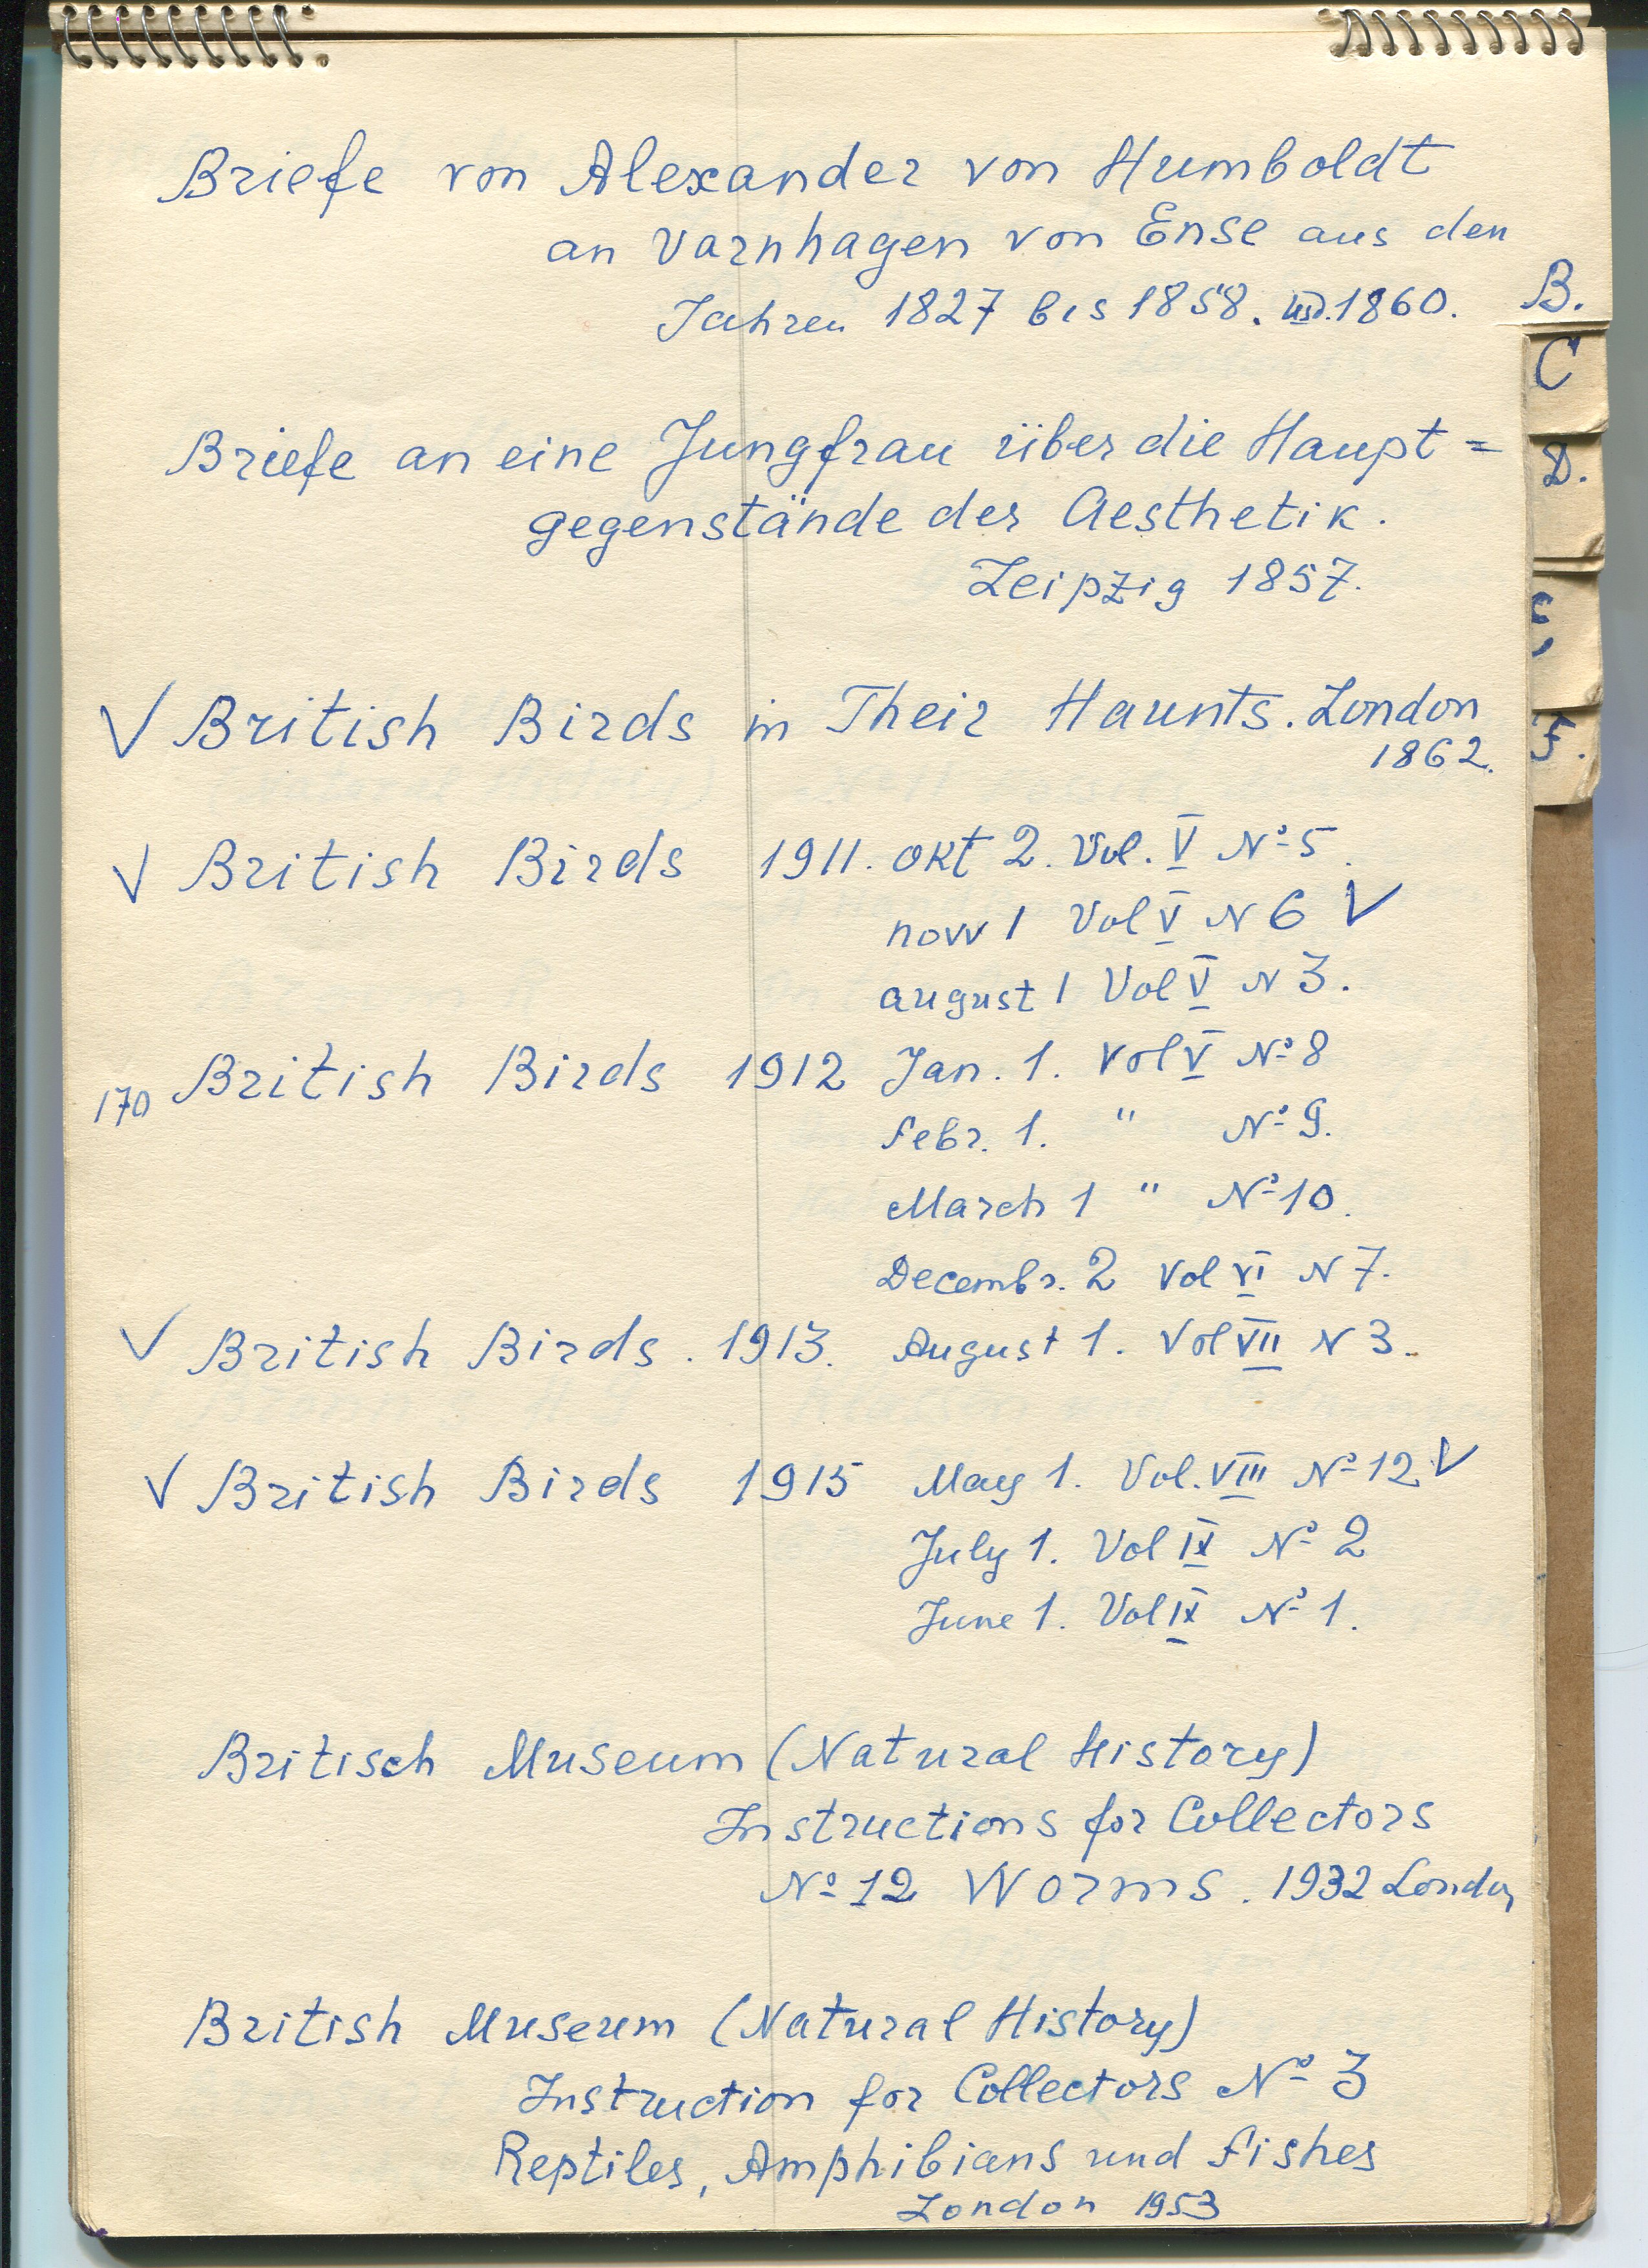 Briefe von Alexander von Humboldt
an Varnhagen von Ense aus den
Jahren 1827 bis 1858. 1860.
B.
C
D.
Briefe an eine Jungfrau über die Haupt=
gegenstände der Aesthetik.
Leipzig 1857.
V British Birds in Their Haunts. London
1862.
V British Birds 1911. okt 2. Vol. V No 5.
novv 1 Vol V N 6 V
august 1 Vol V N 3.
170 British Birds 1912 Jan. 1. Vol V No 8
Febr. 1. " No 9.
March 1 " No 10.
Decembr. 2 Vol VI N 7.
V British Birds. 1913. August 1. Vol VII N 3.
V British Birds 1915 May 1. Vol. VIII No 12 V
July 1. Vol IX No 2
June 1. Vol IX No 1.
Britisch Museum (Natural History)
Instructions for Collectors
No 12 Worms. 1932 London
British Museum (Natural History)
Instruction for Collectors No 3
Reptiles, Amphibians und Fishes
London 1953